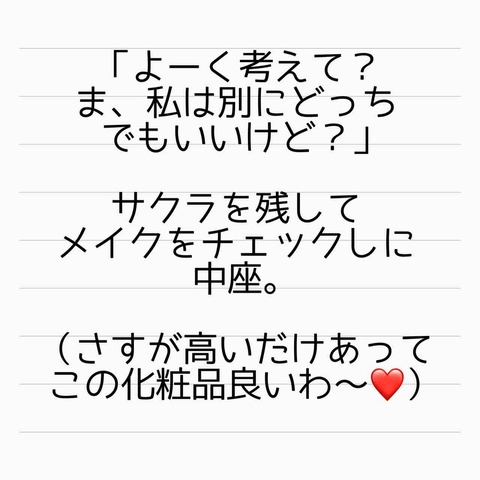 「よーく考えて？
ま、私は別にどっち
でもいいけど？」
サクラを残して
メイクをチェックしに
中座。
（さすが高いだけあって
この化粧品良いわ〜❤️）